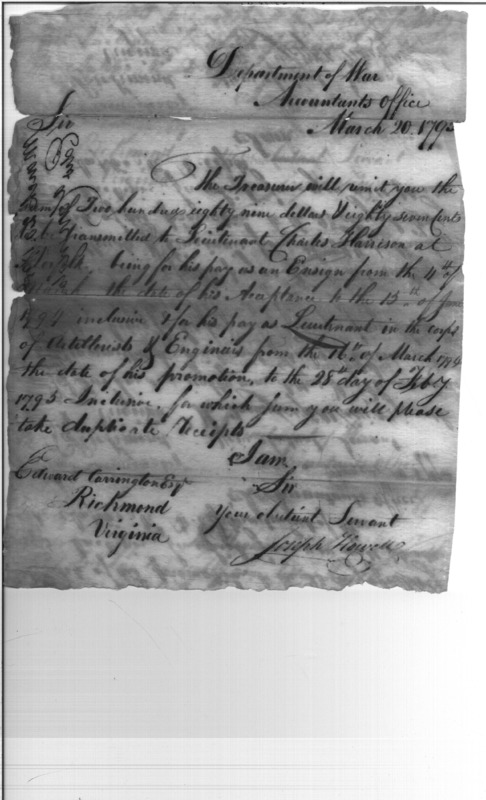 Department of War
Accountants Office
March 20, 1795
Sir
The Treasurer will remit you the
sum of Two hundred eighty nine dollars & eighty seven Cents
to be transmitted to Lieutenant Charles Harrison at
being for his pay as an Ensign from the 4th of
the date of his Acceptance to the 15th of June
1794 inclusive & for his pay as Lieutenant in the corps
of Artillerists & Engineers from the 16th of March 1794
the date of his promotion, to the 28th day of Feby
1795 Inclusive, for which sum you will please
take duplicate receipts
I am
Sir
Your obedient Servant
Joseph Howell
Edward Carrington Esqr
Richmond
Virginia